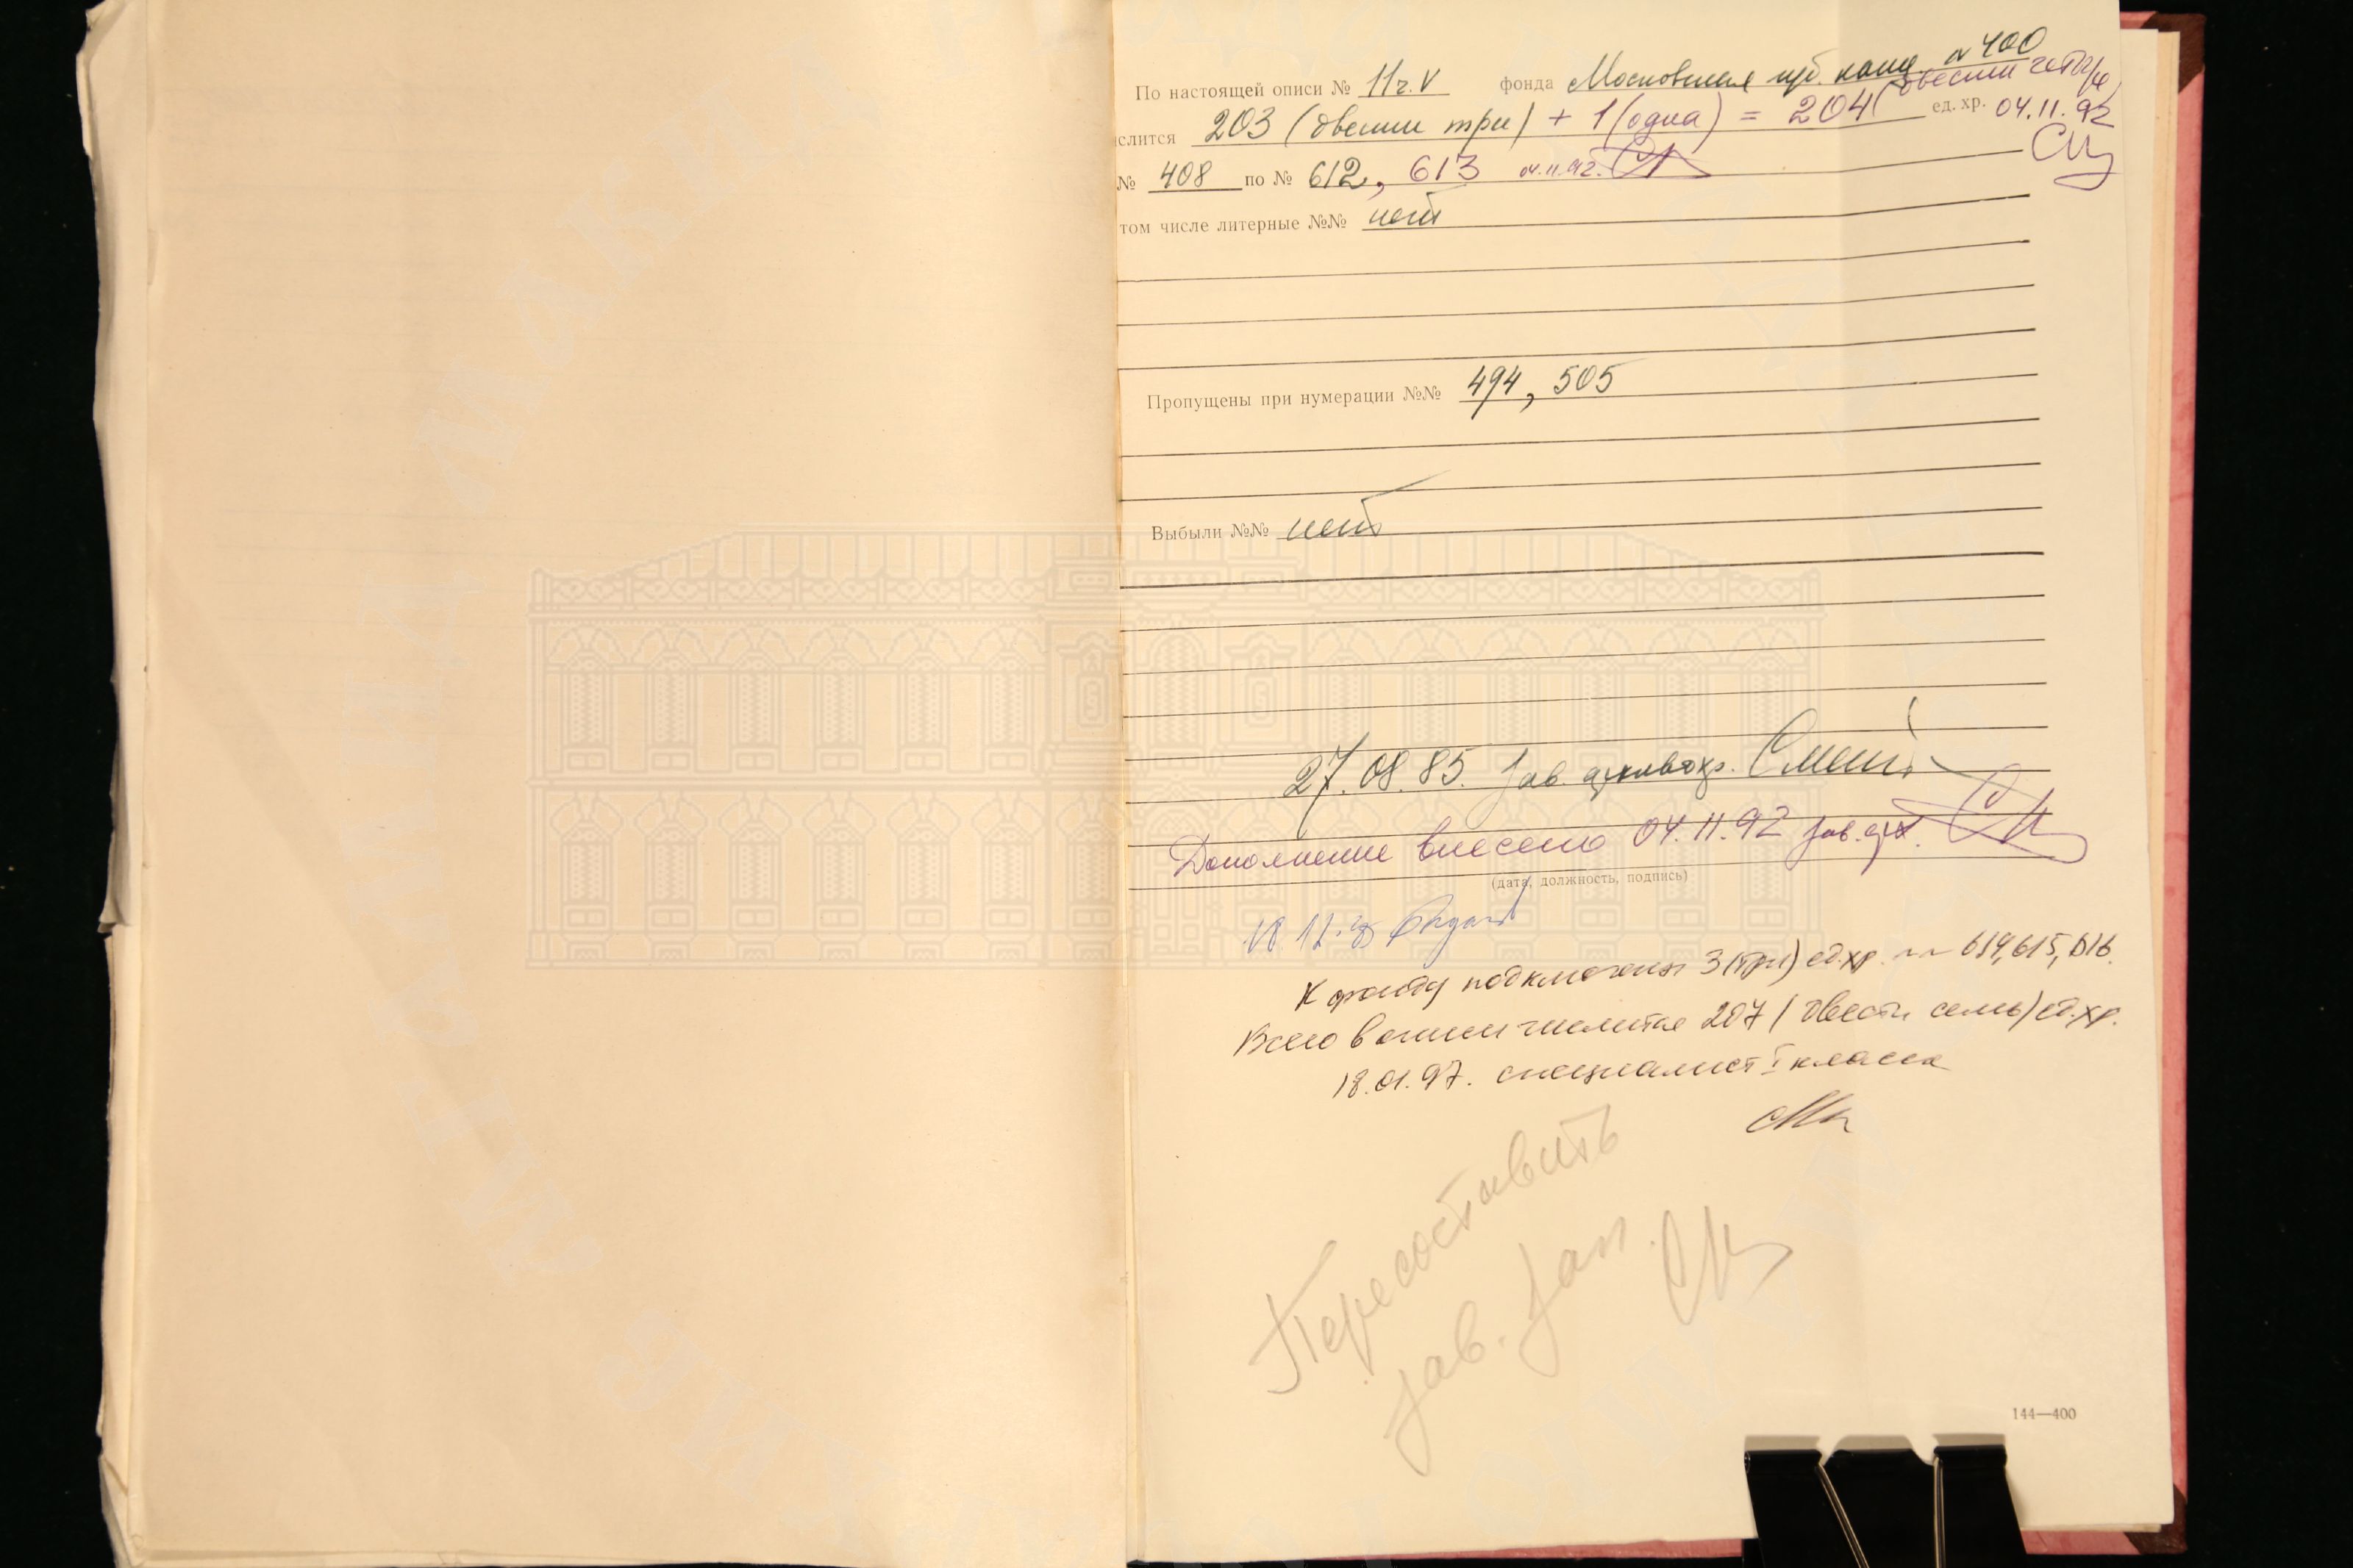 По настоящей описи № 11 ч. V фонда Московская губ. канц. № 400
числится 203 (двести три) + 1 (одна) = 204 (двести четыре) ед. хр. 04.11.92
№ 408 по № 612, 613 04.11.92.
том числе литерные №№ нет
Пропущены при нумерации №№ 494, 505
Выбыли №№ нет
27.08.85. Зав. архивохр.
Дополнение внесено 04.11.92 зав. арх.
(дата, должность, подпись)
К фонду подключены 3 (три) ед. хр. №№ 614, 615, 616.
Всего в описи числится 207 (двести семь) ед. хр.
18.01.97. специалист I класса
Пересоставить
зав. зап.
144—400